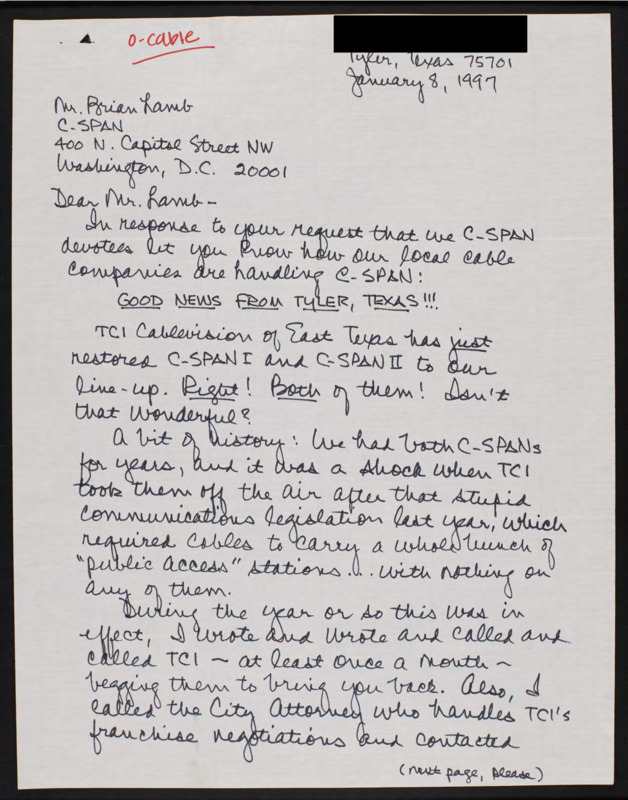 o-cable
Tyler, Texas 75701
January 8, 1997
Mr. Brian Lamb
C-SPAN
400 N. Capitol Street NW
Washington, D.C. 20001
Dear Mr. Lamb -
In response to your request that we C-SPAN
devotees let you know how our local cable
companies are handling C-SPAN:
GOOD NEWS FROM TYLER, TEXAS!!!
TCI Cablevision of East Texas has just
restored C-SPAN I and C-SPAN II to our
line-up. Right! Both of them! Isn't
that wonderful?
A bit of history: We had both C-SPANs
for years, and it was a shock when TCI
took them off the air after that stupid
communications legislation last year, which
required cables to carry a whole bunch of
"public access" stations... with nothing on
any of them.
During the year or so this was in
effect, I wrote and wrote and called and
called TCI ~ at least once a month ~
begging them to bring you back. Also, I
called the City Attorney who handles TCI's
franchise negotiations and contacted
(next page, please)